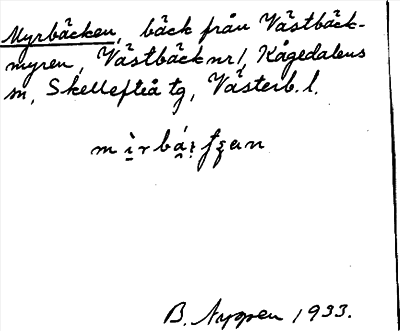 Myrbäcken, bäck från Västbäck-
myren, Västbäck nr 1, Kågedalens
sn, Skellefteå tg, Västerb. l.
B. Nygren 1933.